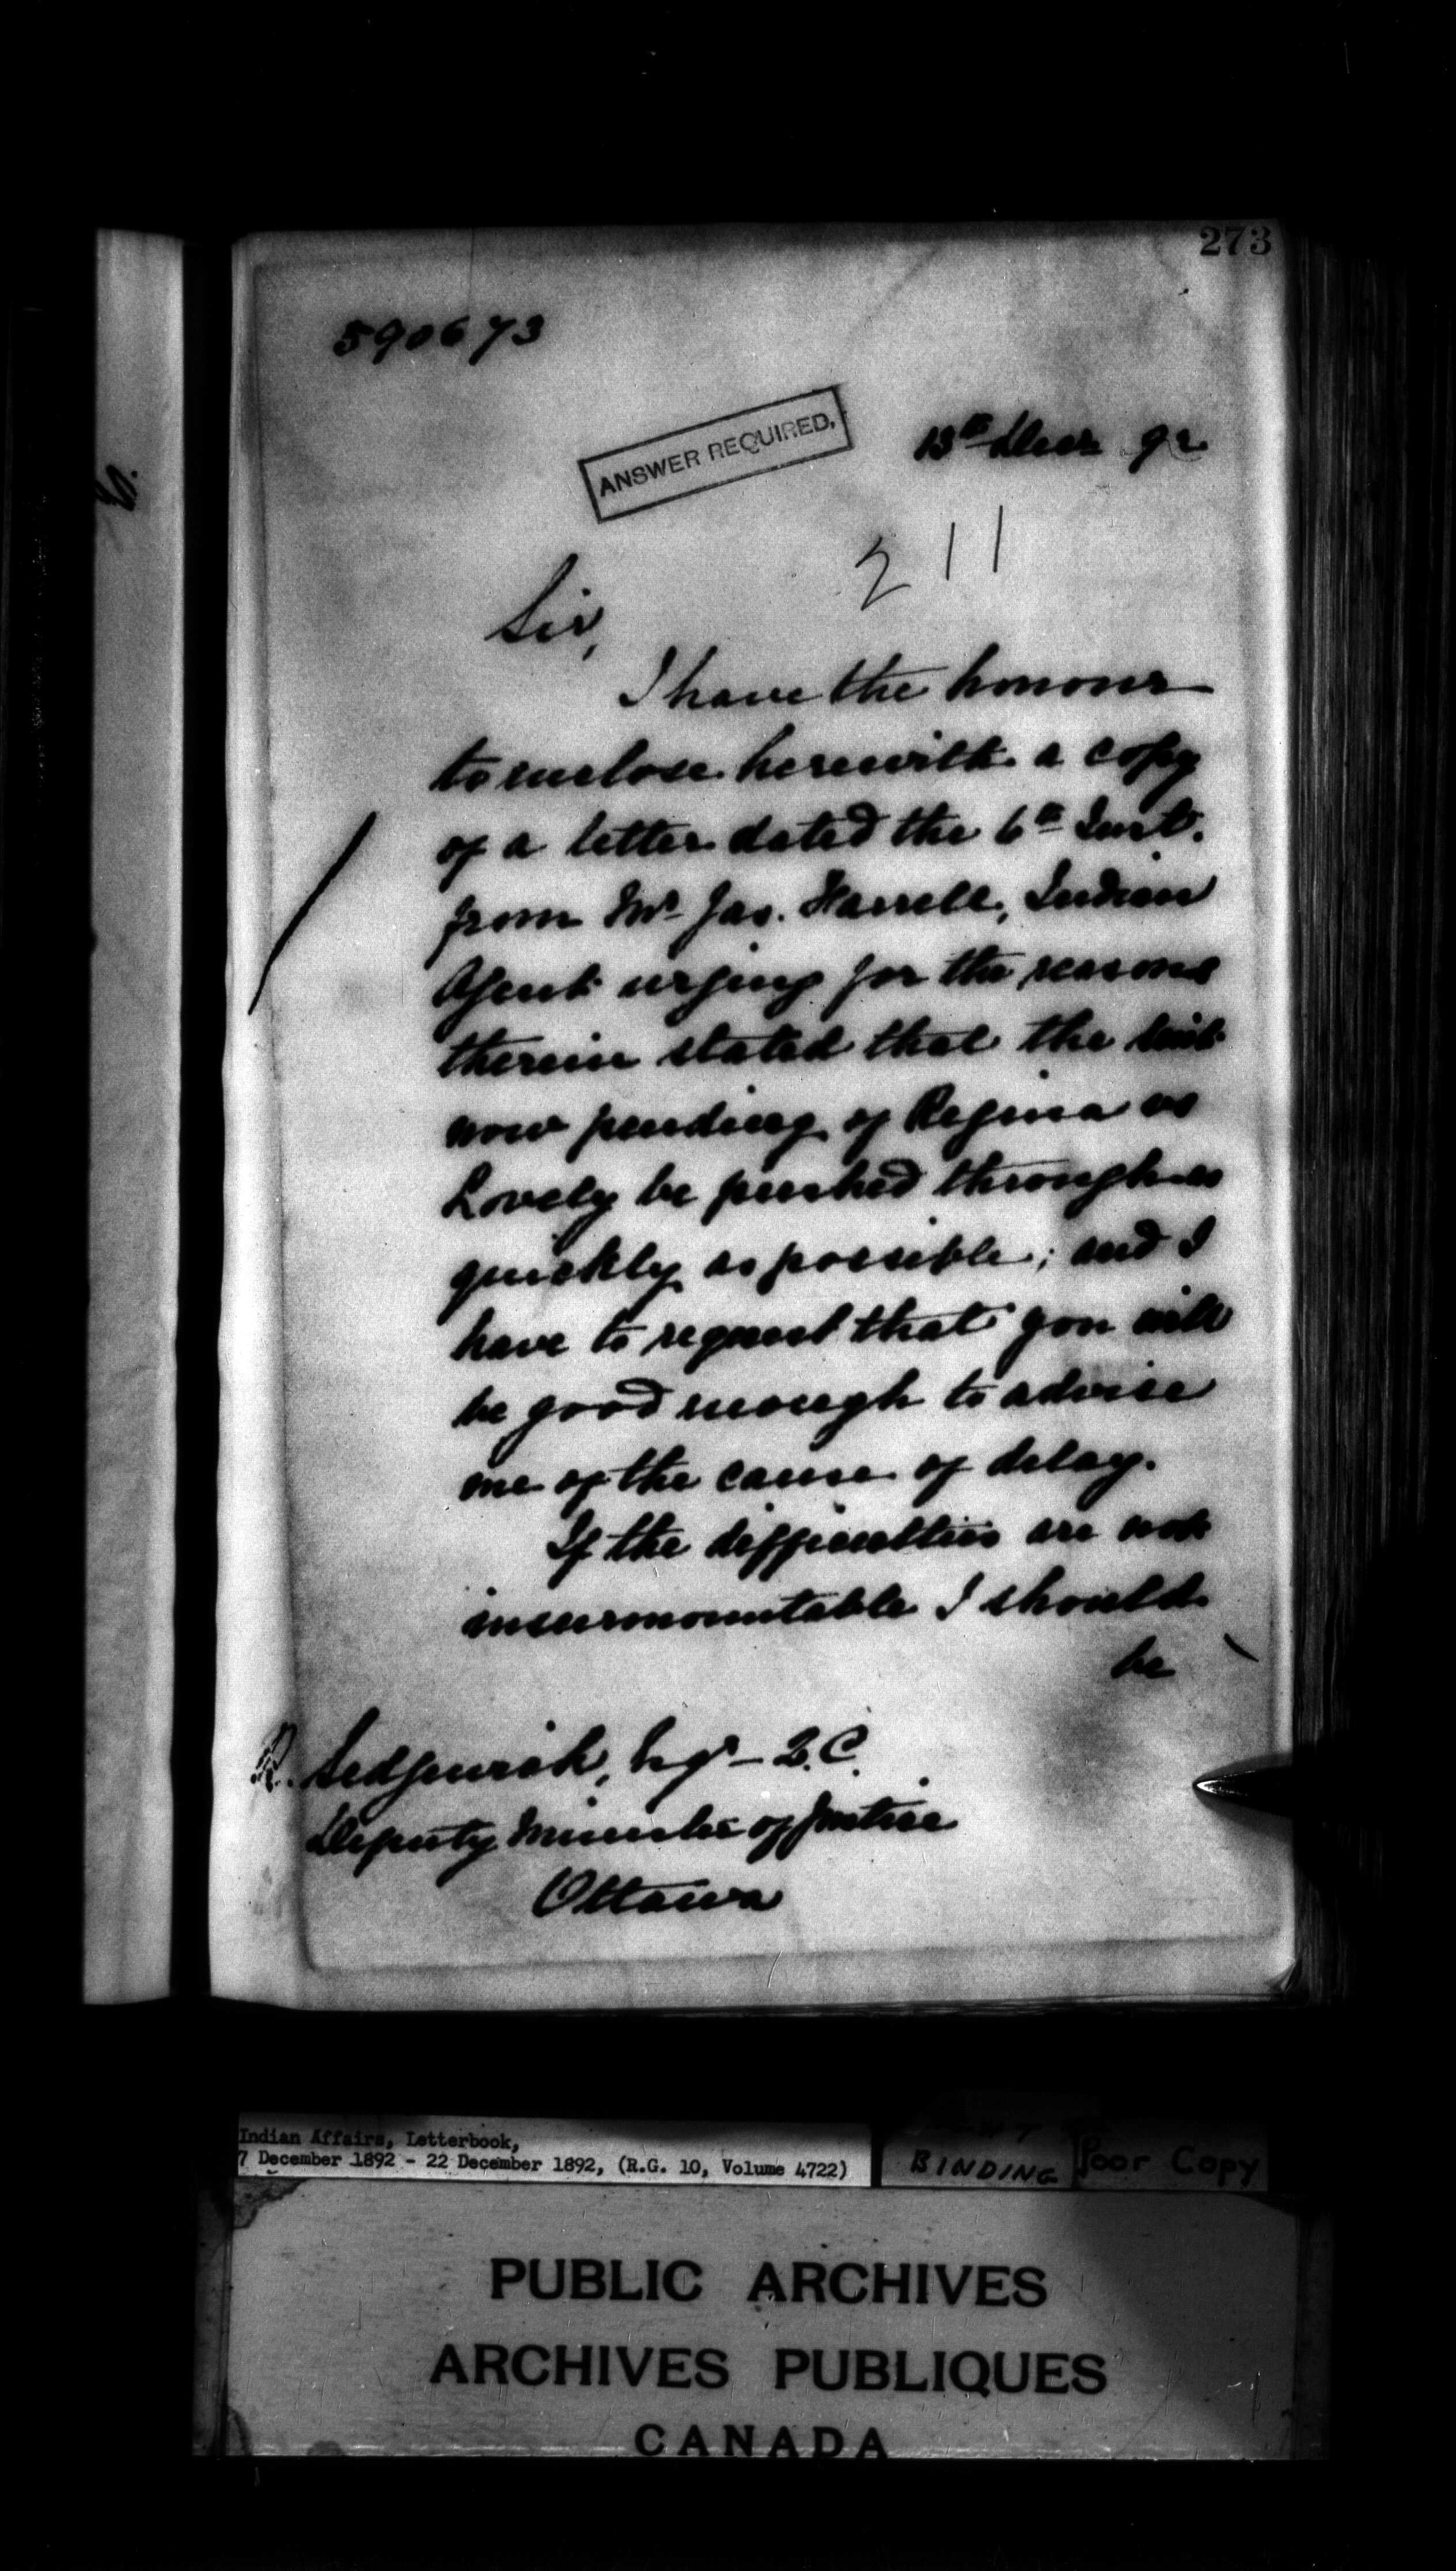 273
590673
ANSWER REQUIRED.
13th Decr 92
211
Sir,
I have the honour
to enclose herewith a copy
of a letter dated the 6th Inst.
from Mr Jas. Farrell, Indian
Agent urging for the reasons
therein stated that the suit
now pending of Regina vs
Lovely be pushed through as
quickly as possible; and I
have to request that you will
be good enough to advise
me of the cause of delay.
If the difficulties are not
insurmountable I should
be
R. Sedgewick, Esqr - Q.C.
Deputy Minister of Justice
Ottawa
Indian Affairs, Letterbook,
7 December 1892 - 22 December 1892, (R.G. 10, Volume 4722)
BINDING
Poor Copy
PUBLIC ARCHIVES
ARCHIVES PUBLIQUES
CANADA